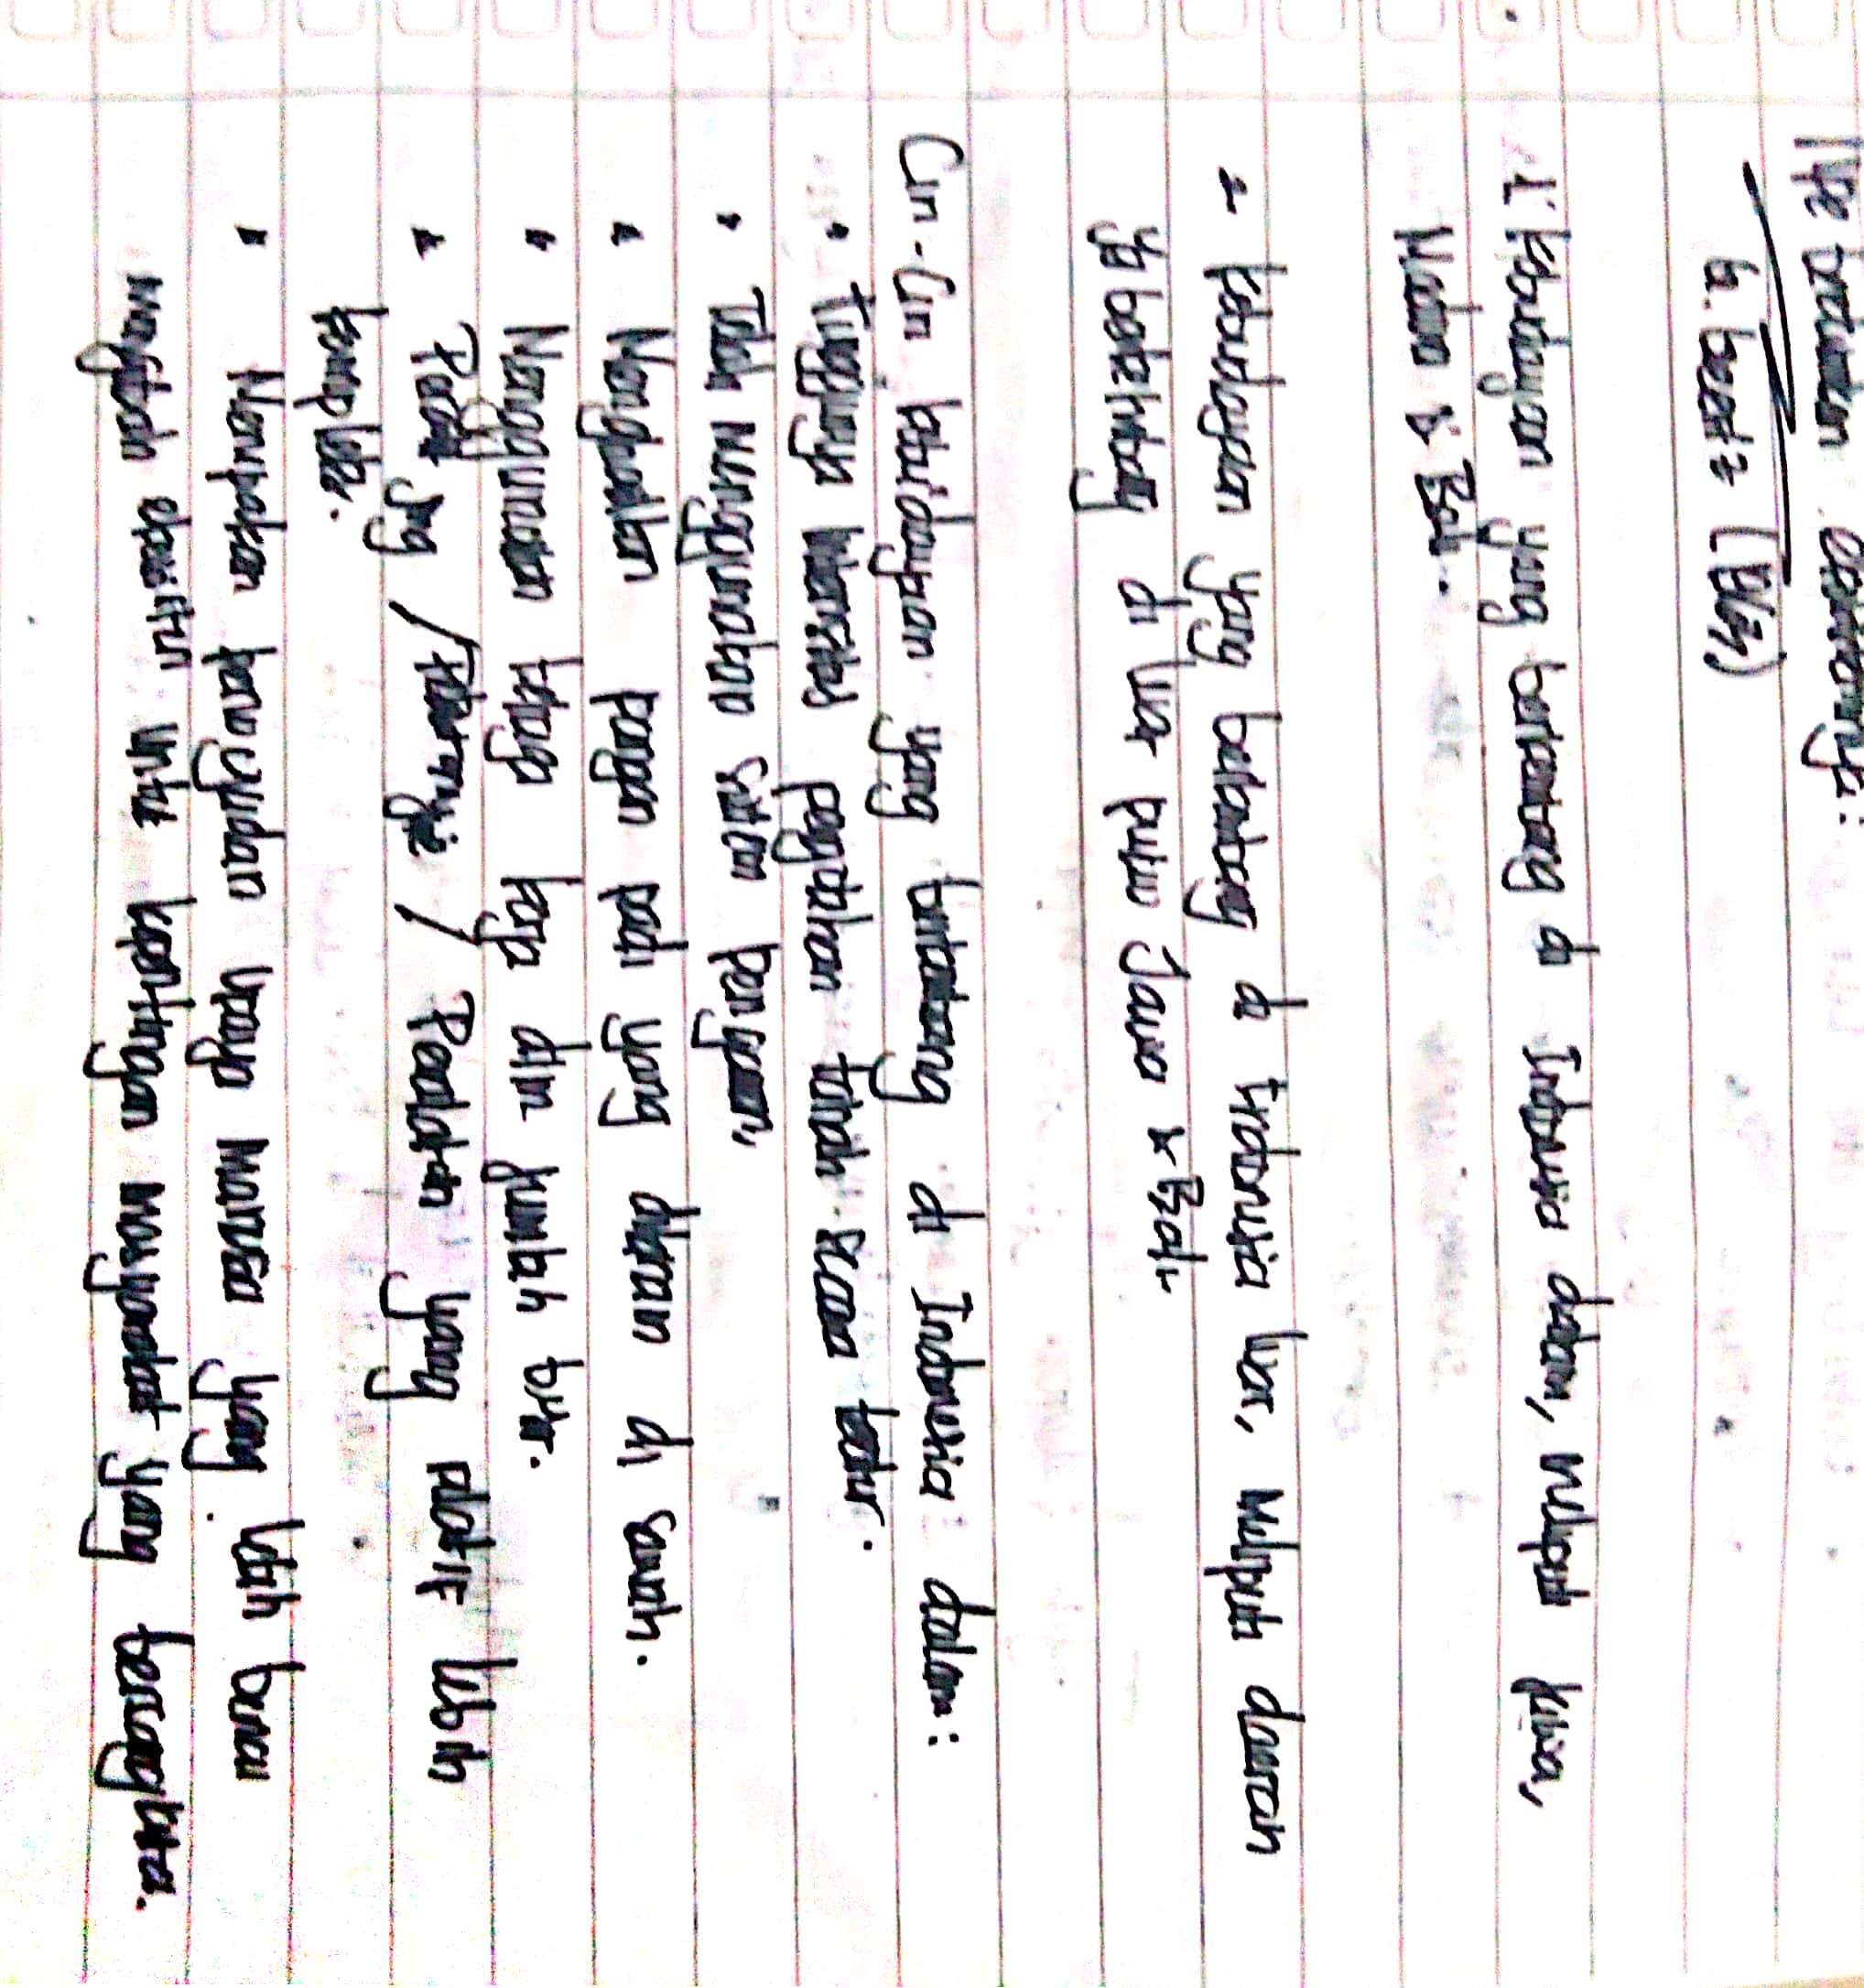 Tipe berdasarkan ekosistemnya:
G. Geertz (1963)
1. Kebudayaan yang berkembang di Indonesia dalam, meliputi pulau Jawa,
Madura & Bali.
2 Kebudayaan yang berkembang di Indonesia luar, meliputi daerah
yg berkembang di luar pulau Jawa & Bali.
Ciri-Ciri kebudayaan yang berkembang di Indonesia dalam:
• Tingginya intensitas pengolahan tanah secara teratur.
• Telah menggunakan sistem pengairan
• Menghasilkan pangan padi yang ditanam di sawah.
• Menggunakan tenaga kerja dlm jumlah besar.
• Pead yg / / Peralatan yang relatif lebih
kompleks.
• Merupakan perwujudan upaya manusia yang lebih banyak
mengubah ekosistem untuk kepentingan masyarakat yang bersangkutan.